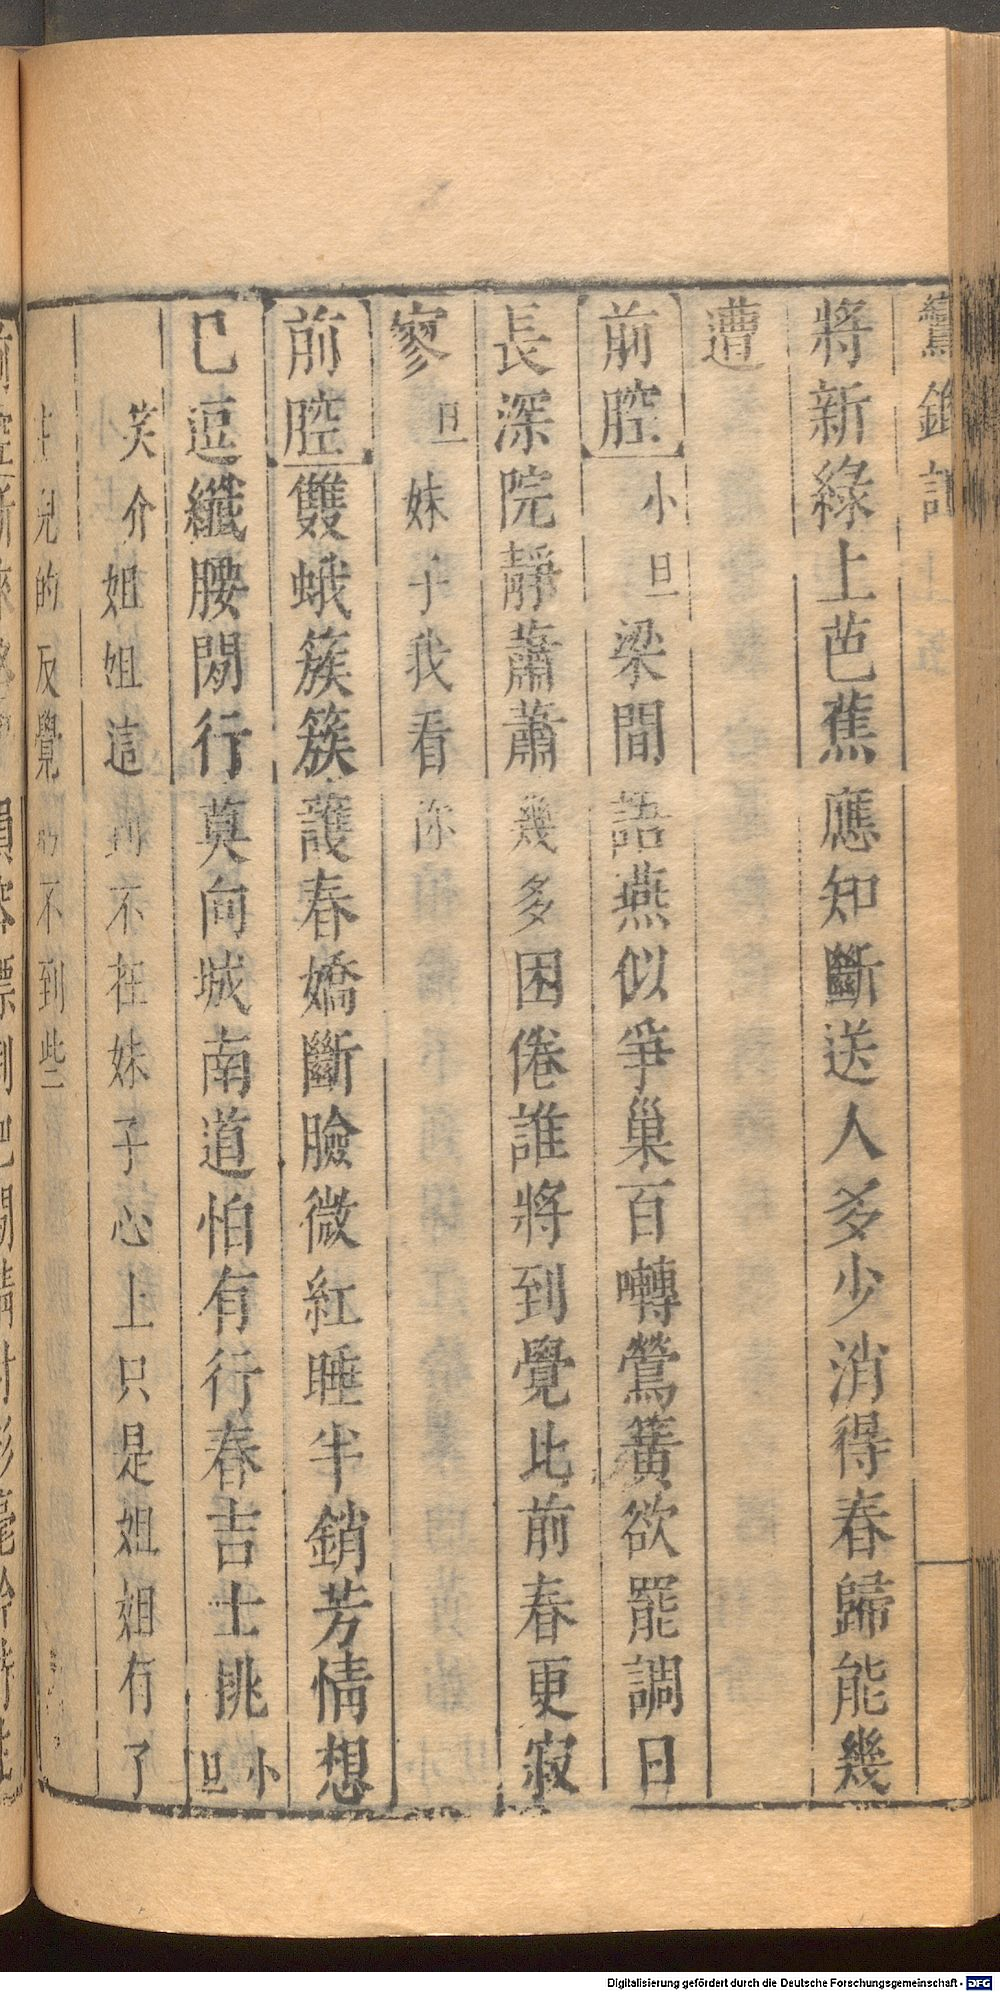 將新綠上芭蕉應知斷送人多少消得春歸能幾
遭
前腔 小旦 梁間語燕似爭巢百囀鶯簧欲罷調日
長深院靜蕭蕭幾多困倦誰將到覺比前春更寂
寥 旦 妹子我看你
前腔 雙蛾簇簇護春嬌斷臉微紅睡半銷芳情想
已逗纖腰閒行莫向城南道怕有行春吉士挑 小旦
笑介 姐姐這到不在妹子心上只是姐姐有了
兒的反覺 不到些
Digitalisierung gefördert durch die Deutsche Forschungsgemeinschaft - DFG